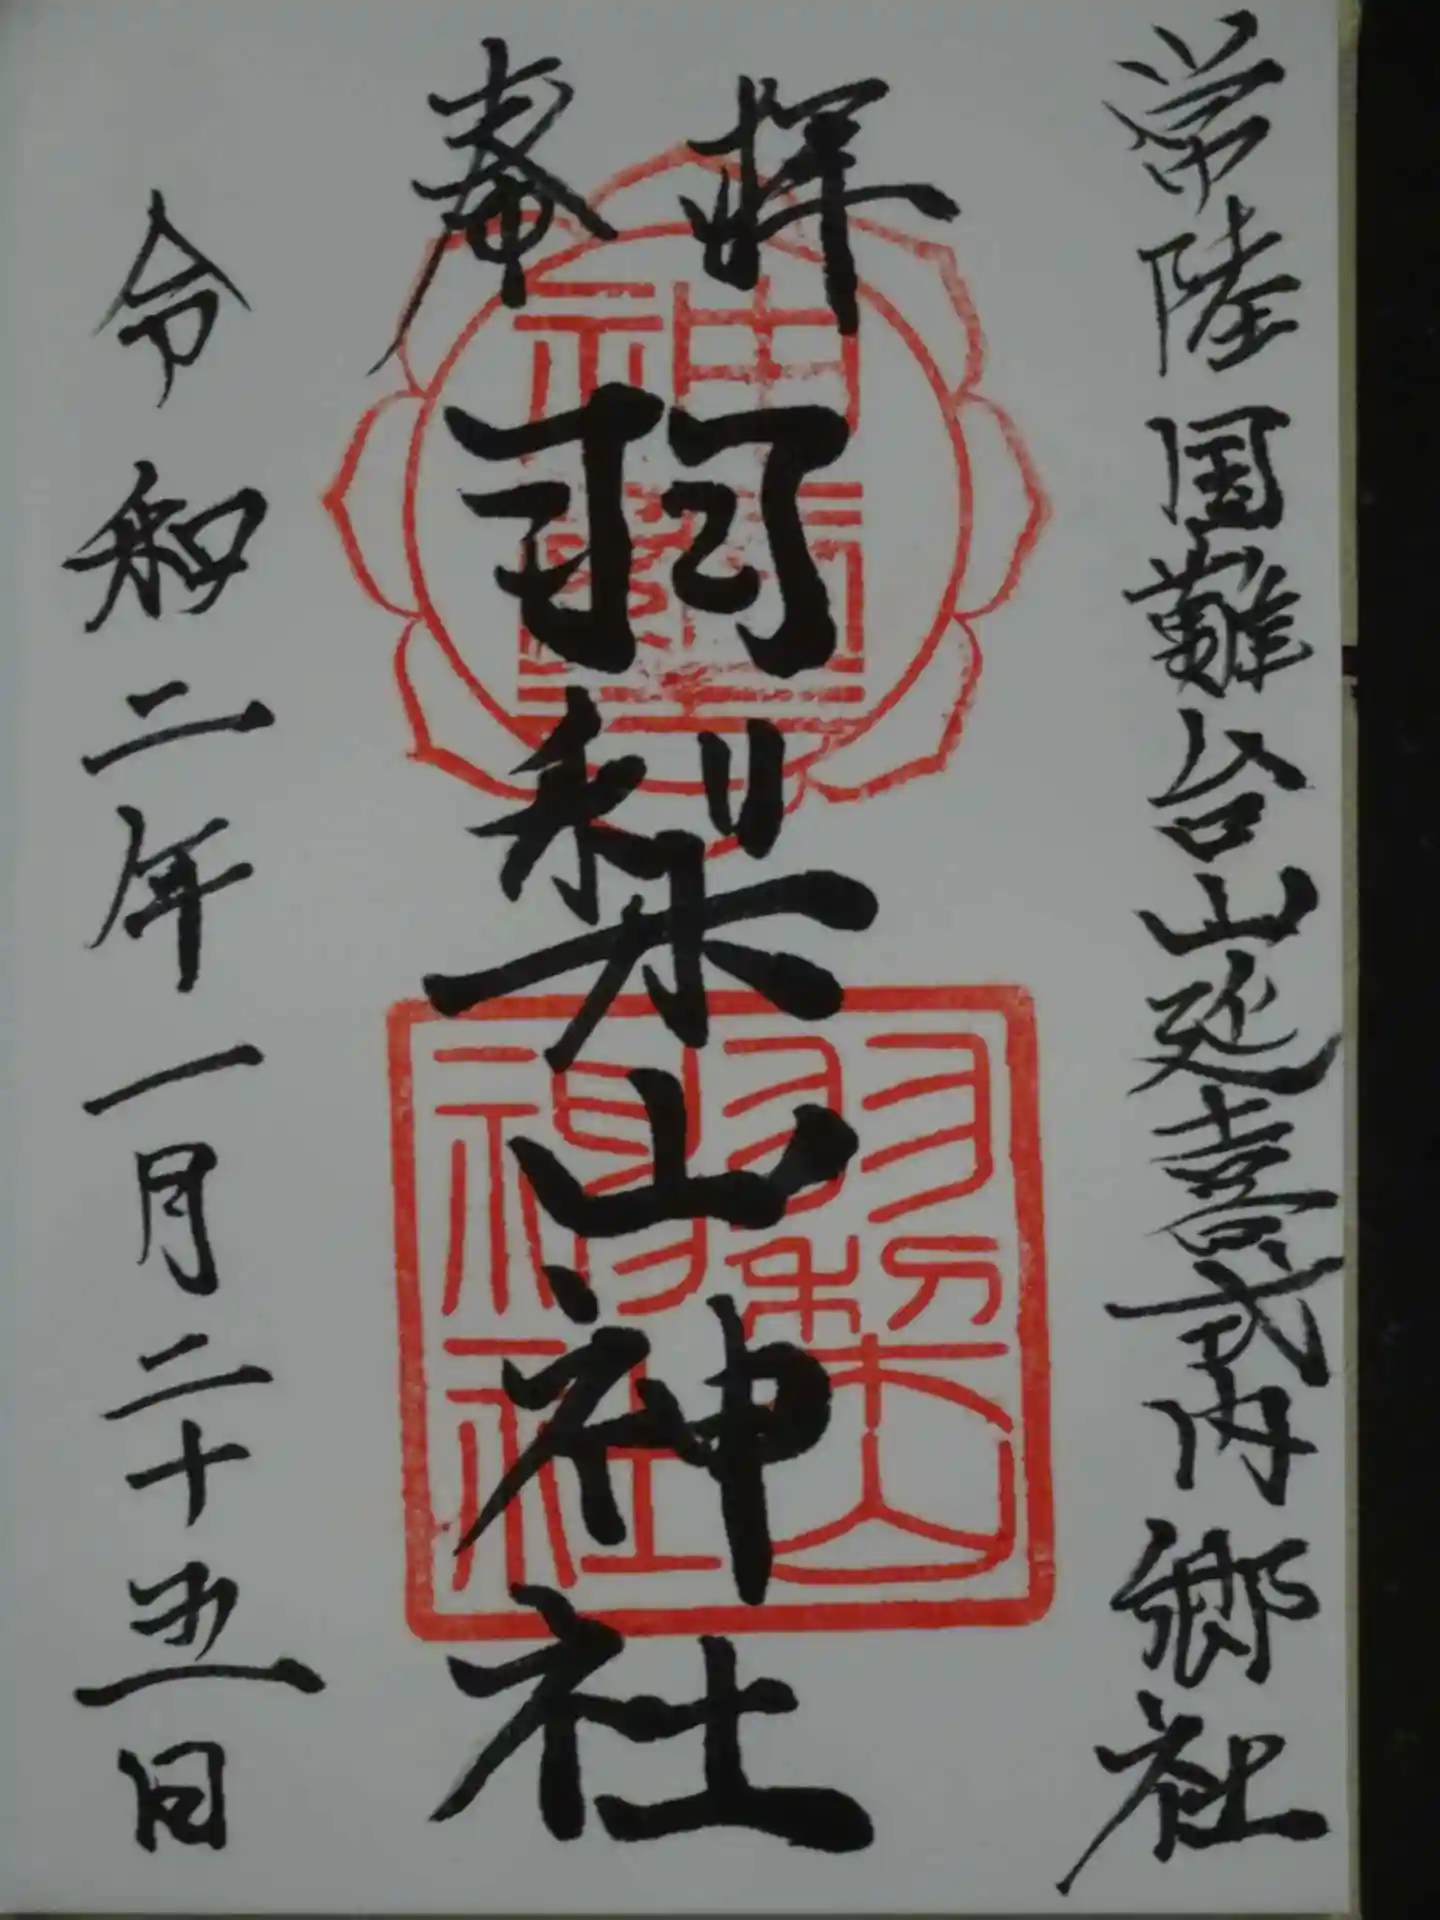 常陸国難台山延喜式内郷社
奉拝
羽梨山神社
羽梨山神社
令和二年一月二十五日